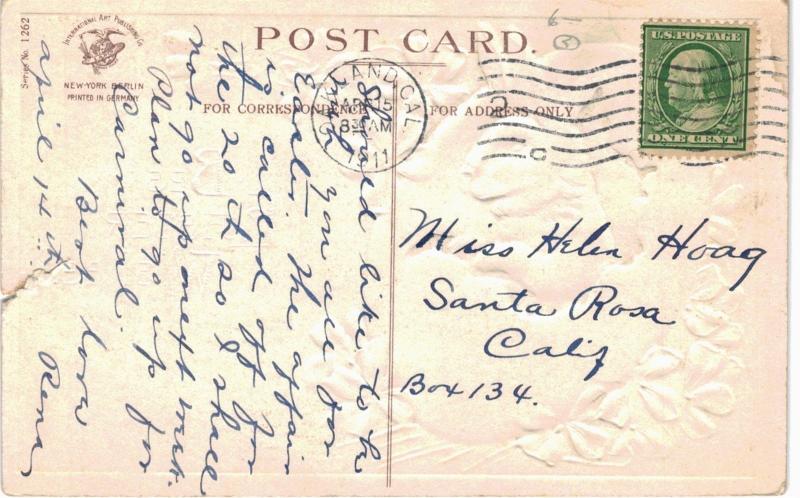 Series No. 1262
INTERNATIONAL ART PUBLISHING Co.
NEW-YORK BERLIN
PRINTED IN GERMANY
POST CARD.
FOR CORRESPONDENCE
FOR ADDRESS ONLY
OAKLAND, CAL
APR 15
830AM
1911
U.S. POSTAGE
ONE CENT
6-
5
2
Should like to be
with you all for
Easter. The affair
is called off for
the 20th so I shall
not go up next wk.
Plan to go up for
Carnival.
Best love
Rena
april 14th.
Miss Helen Hoag
Santa Rosa
Calif
Box 134.